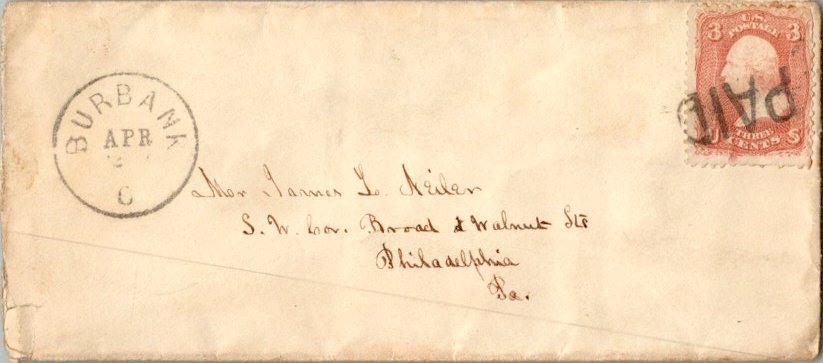 BURBANK
APR
U.S.
POSTAGE
3 3
THREE
CENTS
PAID
James L.
S. W. Cor. Broad & Walnut Sts
Philadelphia
Pa.